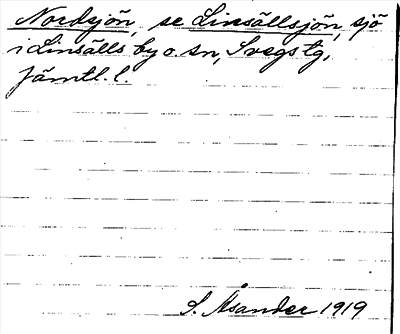 Nordsjön, se Linsällsjön, sjö
i Linsälls by o. sn, Svegs tg,
Jämtl. l.
S. Åsander 1919